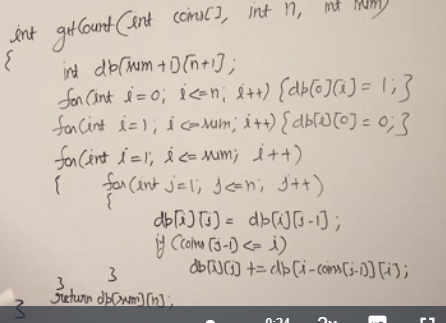 int getCount(int coins[], int n, int sum)
{
int dp[sum+1][n+1];
for(int i=0; i<=n; i++) {dp[0][i] = 1;}
for(int i=1; i<=sum; i++) {dp[i][0] = 0;}
for(int i=1; i<=sum; i++)
{ for(int j=1; j<=n; j++)
{
dp[i][j] = dp[i][j-1];
if (coins[j-1] <= i)
dp[i][j] += dp[i-coins[j-1]][j];
} }
return dp[sum][n];
}
0:24 2x